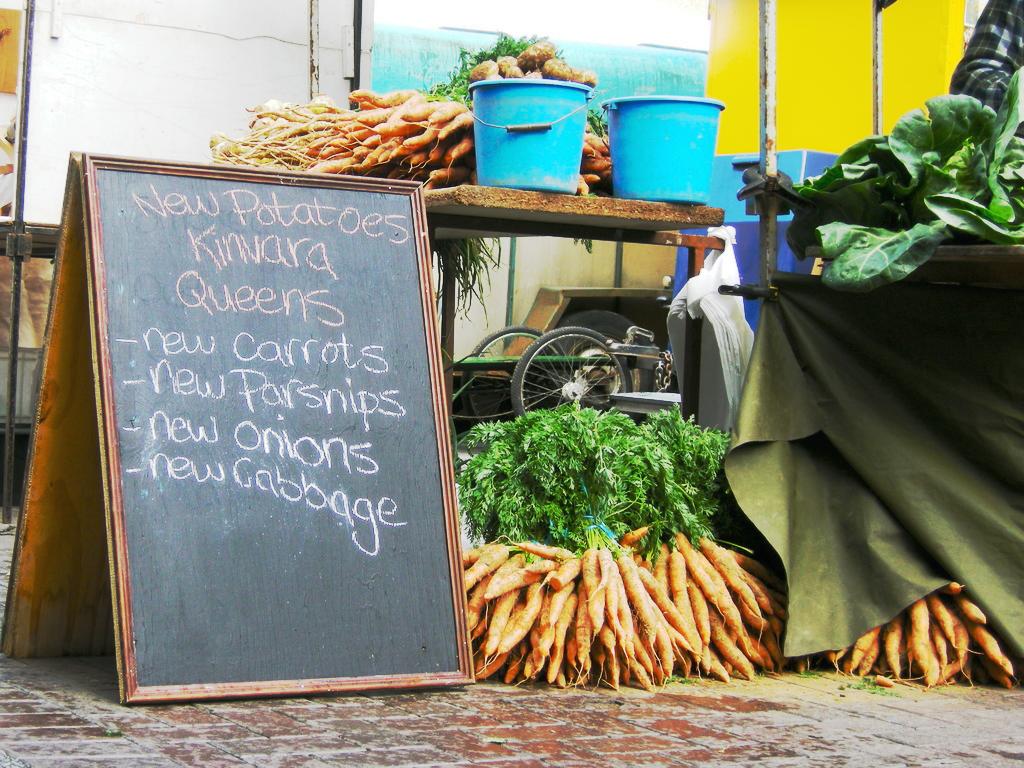 New Potatoes
Kinvara
Queens
-new carrots
-new Parsnips
-new onions
-new Cabbage